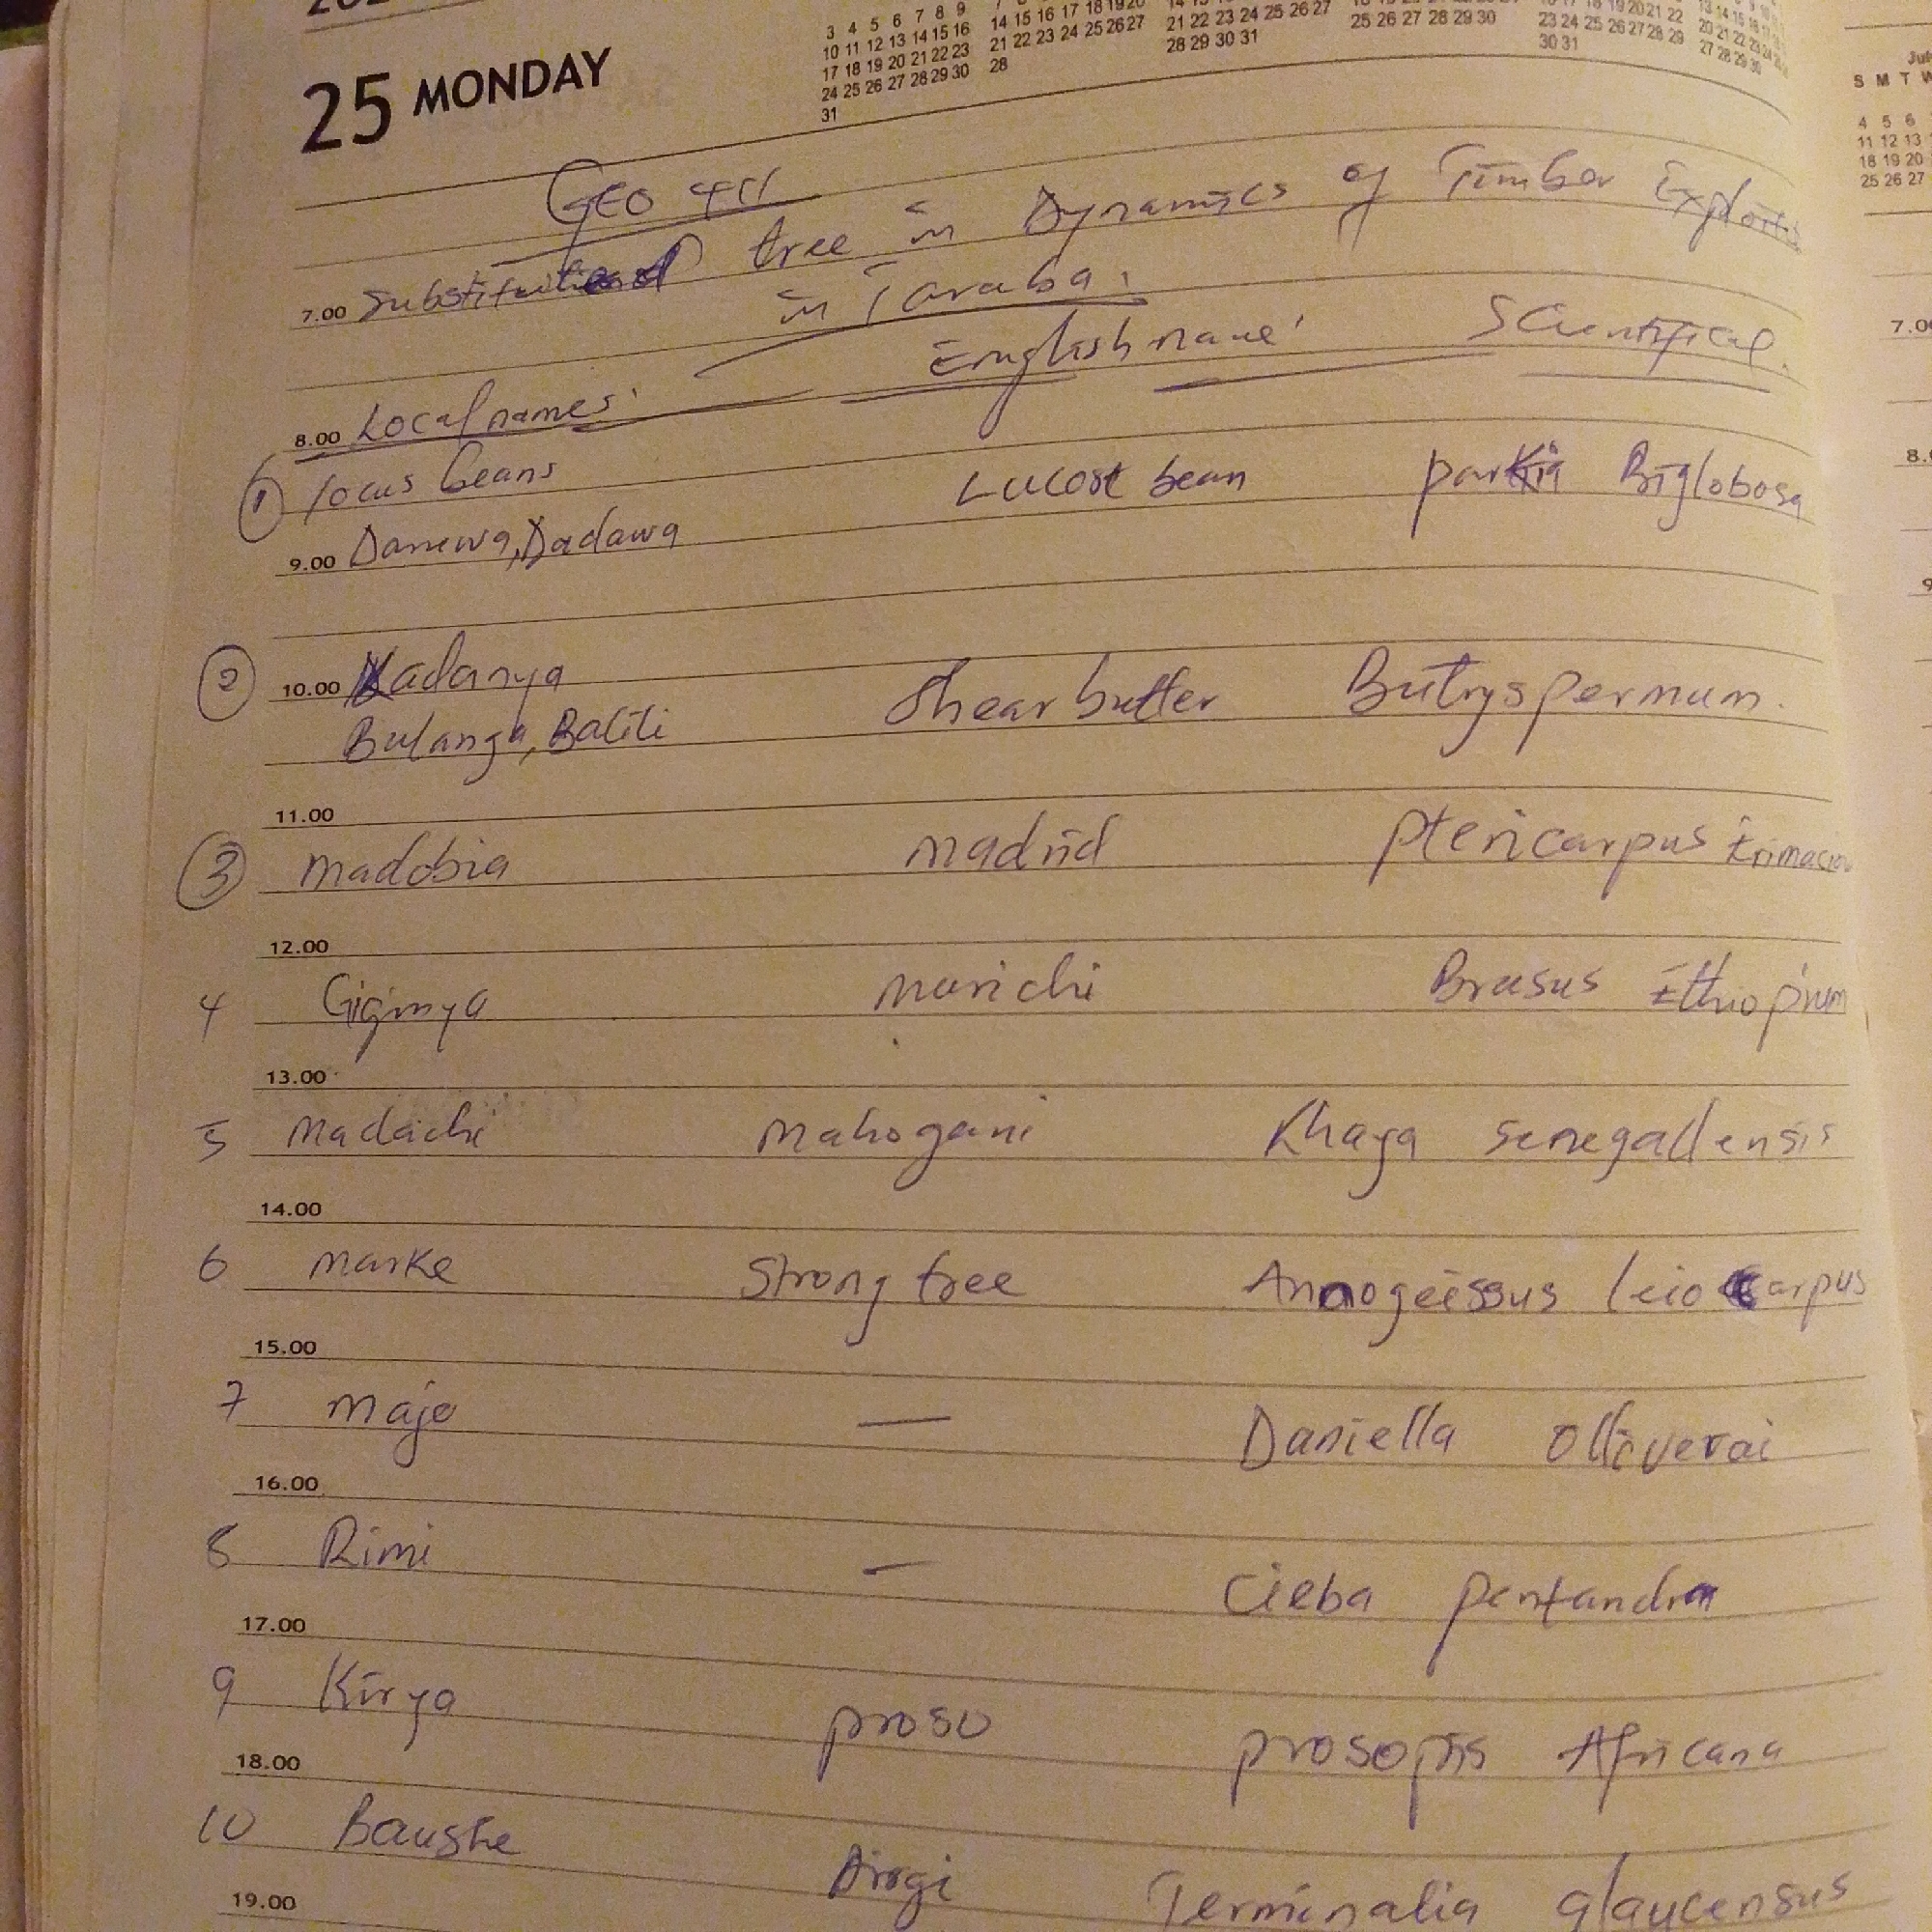 25 MONDAY
3 4 5 6 7 8 9
10 11 12 13 14 15 16
17 18 19 20 21 22 23
24 25 26 27 28 29 30
31
14 15 16 17 18 19 20
21 22 23 24 25 26 27
28
21 22 23 24 25 26 27
28 29 30 31
25 26 27 28 29 30
23 24 25 26 27 28 29
30 31
27 28 29 30
S M T
4 5 6
11 12 13
18 19 20
25 26 27
Geo 411
7.00 tree in Dynamics of Timber
in Taraba.
8.00 Local names. English name Scientifical.
1 locus beans Lucost bean parkia Biglobosa
9.00 Danewa, Dadawa
2 10.00 Kadanya Shear butter Butryspermum.
Bulanga, Baliti
11.00
3 madobia madrid ptericarpus
12.00
4 Giginya murichi Brasus Ethiopium
13.00
5 madachi mahogani Khaya senegallensis
14.00
6 marke Strong tree Annogeissus leiocarpus
15.00
7 maje — Daniella Olliverai
16.00
8 Rimi — Cieba pentandra
17.00
9 Kirya proso prosopis Africana
18.00
10 Baushe Terminalia glaucensus
19.00